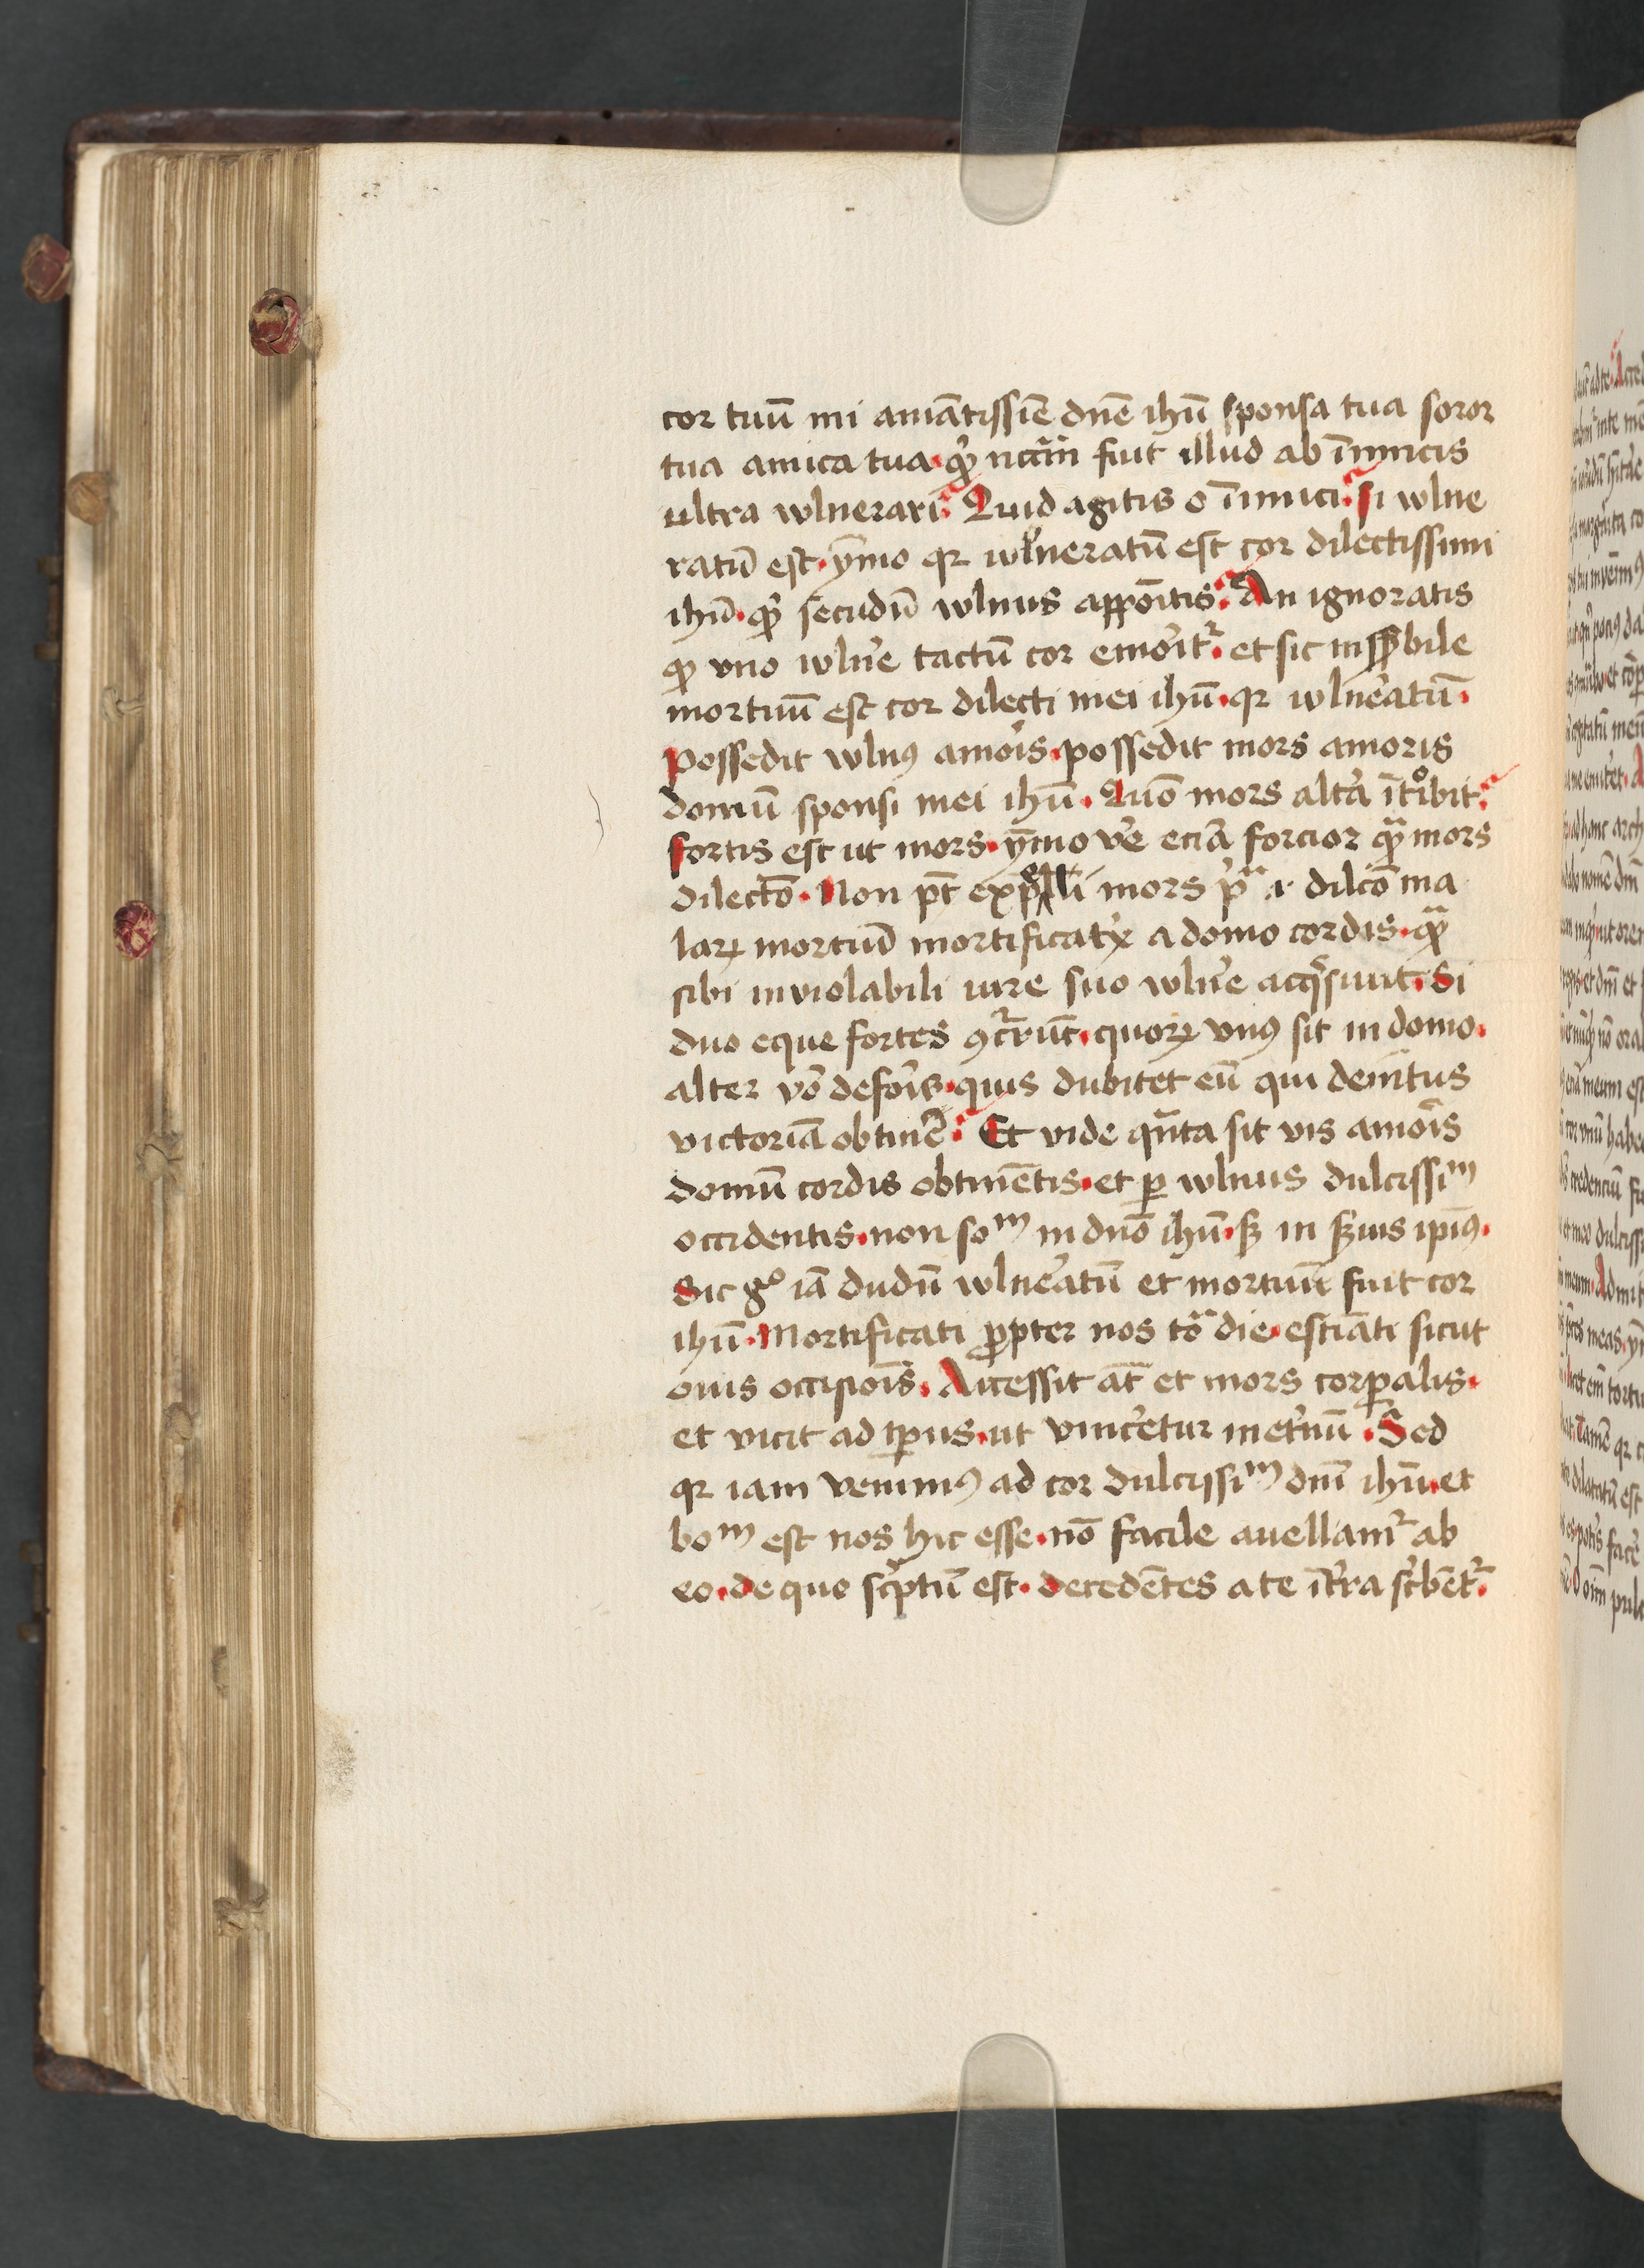 cor tuū mi amātissīe dn̄e ihū sponsa tua soror
tua amica tua. qͥd nccārin̄ fuit illud ab īimicis
ultra wlnerari. Quid agitis o īimici. si wlne
ratū est. ȳmo qꝛ wlneratū est cor dilectissimi
ihū. qͥd secūdū wlnus appōitis. An ignoratis
qꝫ vno wlnͤe tactū cor emorͥitᷣ. et sic insēsibile
mortuū est cor dilecti mei ihū. qꝛ wlnͤeatū.
Possedit wlnꝰ amorͥis. possedit mors amoris
domū sponsi mei ihū. Quō mors altͤa ītͦibit.
fortis est ut mors. ȳmo vͤe eciā forcior qᷓ mors
dilectō. Non pt̄ expelli mors pͥᵃ .i. dilcō ma
laꝝ mortuū mortificatͥx a domo cordis. qᷓ
sibi inviolabili iure suo wlnͤe acqͥsiuit. Si
duo eque fortes ꝯcͤrūt. quoꝝ vnꝰ sit in domo.
alter vͦo deforͥis. quis dubitet eū qui deintus
victoriā obtinͤe. Et vide qn̄ta sit vis amorͥis
domū cordis obtinētis. et ꝑ wlnus dulcissiᵐ
occidentis. non soᵐ in dn̄o ihū. sꝫ in sͤuis ipīꝰ.
Sic gͦ iā dudū wlnͤeatū et mortuū fuit cor
ihū. Mortificati ꝓpter nos tōᵃ die. estīati sicut
ouis occisiōis. Accessit āt et mors corꝑalis.
et vicit ad tp̄us. ut vincͤetur inetͤnū. Sed
qꝛ iam venimꝰ ad cor dulcissiᵐ dn̄i ihū. et
boᵐ est nos hic esse. nō facile auellamᷣ ab
eo. de quo scͥptū est. decedētes a te ītͤra scͥbēt᷑.